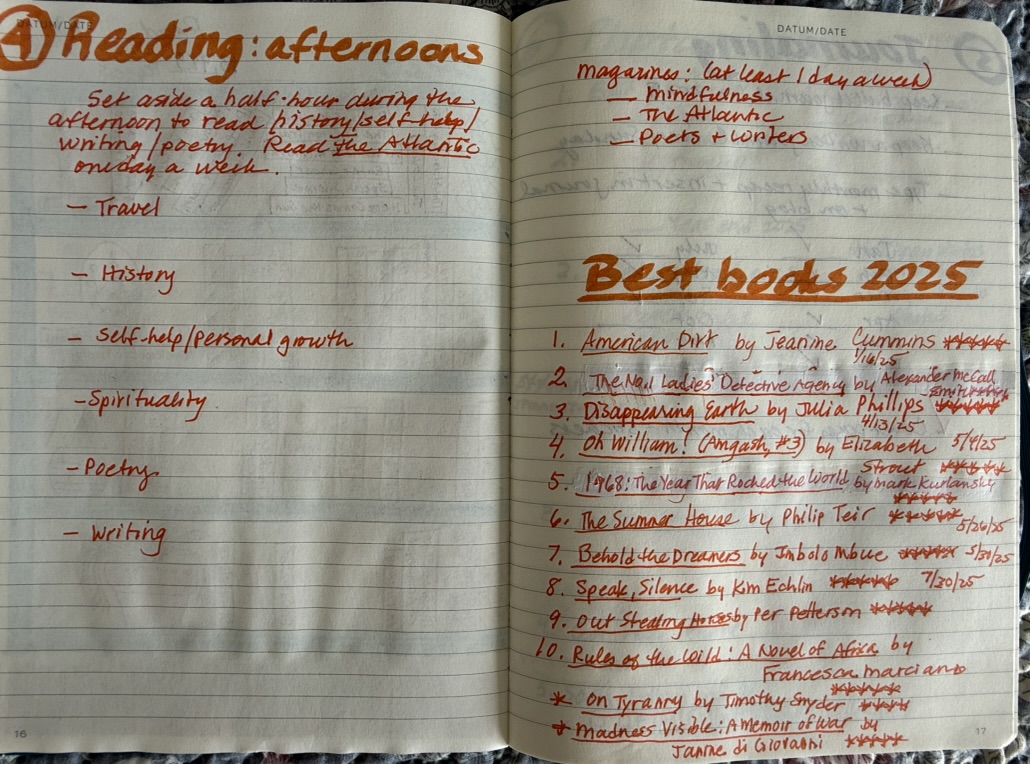 DATUM/DATE
4) Reading: afternoons
Set aside a half-hour during the
afternoon to read history/self-help/
writing/poetry. Read the Atlantic
one day a week.
— Travel
— History
— Self-help/personal growth
— Spirituality
— Poetry
— Writing
16
DATUM/DATE
magazines: (at least 1 day a week)
— Mindfulness
— The Atlantic
— Poets + Writers
Best books 2025
1. American Dirt by Jeanine Cummins *****
1/16/25
2. The No. 1 Ladies' Detective Agency by Alexander McCall
Smith *****
3. Disappearing Earth by Julia Phillips *****
4/13/25
4. Oh William! (Amgash, #3) by Elizabeth 5/4/25
Strout *****
5. 1968: The Year That Rocked the World by Mark Kurlansky
*****
6. The Summer House by Philip Teir *****
5/26/25
7. Behold the Dreamers by Imbolo Mbue ***** 5/30/25
8. Speak, Silence by Kim Echlin ***** 7/30/25
9. Out Stealing Horses by Per Petterson *****
10. Rules of the Wild: A Novel of Africa by
Francesca Marciano
*****
* On Tyranny by Timothy Snyder ****
* Madness Visible: A Memoir of War by
Janine di Giovanni *****
17